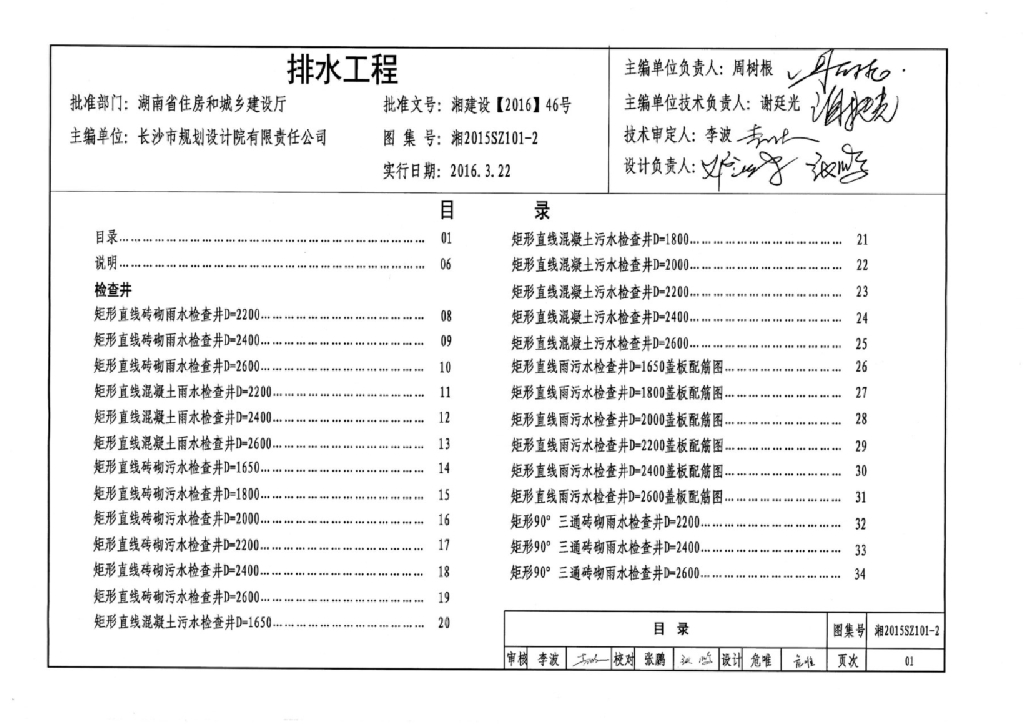 排水工程
批准部门：湖南省住房和城乡建设厅
批准文号：湘建设【2016】46号
主编单位：长沙市规划设计院有限责任公司
图 集 号：湘2015SZ101-2
实行日期：2016.3.22
主编单位负责人：周树根
主编单位技术负责人：谢廷光
技术审定人：李波
设计负责人：
目 录
目录…………………………………………………… 01
说明…………………………………………………… 06
检查井
矩形直线砖砌雨水检查井D=2200………………………… 08
矩形直线砖砌雨水检查井D=2400………………………… 09
矩形直线砖砌雨水检查井D=2600………………………… 10
矩形直线混凝土雨水检查井D=2200……………………… 11
矩形直线混凝土雨水检查井D=2400……………………… 12
矩形直线混凝土雨水检查井D=2600……………………… 13
矩形直线砖砌污水检查井D=1650………………………… 14
矩形直线砖砌污水检查井D=1800………………………… 15
矩形直线砖砌污水检查井D=2000………………………… 16
矩形直线砖砌污水检查井D=2200………………………… 17
矩形直线砖砌污水检查井D=2400………………………… 18
矩形直线砖砌污水检查井D=2600………………………… 19
矩形直线混凝土污水检查井D=1650……………………… 20
矩形直线混凝土污水检查井D=1800……………………… 21
矩形直线混凝土污水检查井D=2000……………………… 22
矩形直线混凝土污水检查井D=2200……………………… 23
矩形直线混凝土污水检查井D=2400……………………… 24
矩形直线混凝土污水检查井D=2600……………………… 25
矩形直线雨污水检查井D=1650盖板配筋图………………… 26
矩形直线雨污水检查井D=1800盖板配筋图………………… 27
矩形直线雨污水检查井D=2000盖板配筋图………………… 28
矩形直线雨污水检查井D=2200盖板配筋图………………… 29
矩形直线雨污水检查井D=2400盖板配筋图………………… 30
矩形直线雨污水检查井D=2600盖板配筋图………………… 31
矩形90° 三通砖砌雨水检查井D=2200…………………… 32
矩形90° 三通砖砌雨水检查井D=2400…………………… 33
矩形90° 三通砖砌雨水检查井D=2600…………………… 34
目 录 图集号 湘2015SZ101-2
审核 李波 校对 张鹏 设计 危唯 页次 01